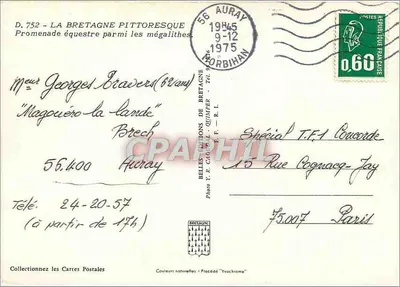 D. 752 - LA BRETAGNE PITTORESQUE
Promenade équestre parmi les mégalithes.
56 AURAY
1945
9-12
1975
MORBIHAN
REPUBLIQUE FRANCAISE
0,60
Mr Georges Travers (62 ans)
"Magouëro la lande"
Brech
56.400 Auray
Télé: 24-20-57
(à partir de 17h)
BELLES EDITIONS DE BRETAGNE
CPARPHIL
Spécial T.F.1 Concorde
15 Rue Cognacq-Jay
75.007 Paris
BRETAGNE
Collectionnez les Cartes Postales
Couleurs naturelles